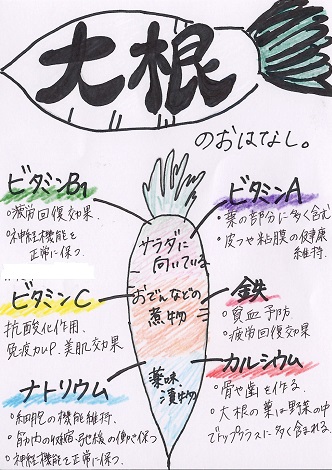 大根
のおはなし。
ビタミンB1
・疲労回復効果
・神経機能を
正常に保つ。
ビタミンA
・葉の部分に多く含む
・皮フや粘膜の健康
維持。
サラダに
向いている
おでんなどの
煮物
薬味、
漬物
ビタミンC
抗酸化作用、
免疫力UP、美肌効果
鉄
・貧血予防
・疲労回復効果
ナトリウム
・細胞の機能維持、
・筋肉の収縮・弛緩の働き保つ
・神経機能を正常に保つ。
カルシウム
・骨や歯を作る。
・大根の葉は野菜の中
でトップクラスに多く含まれる。